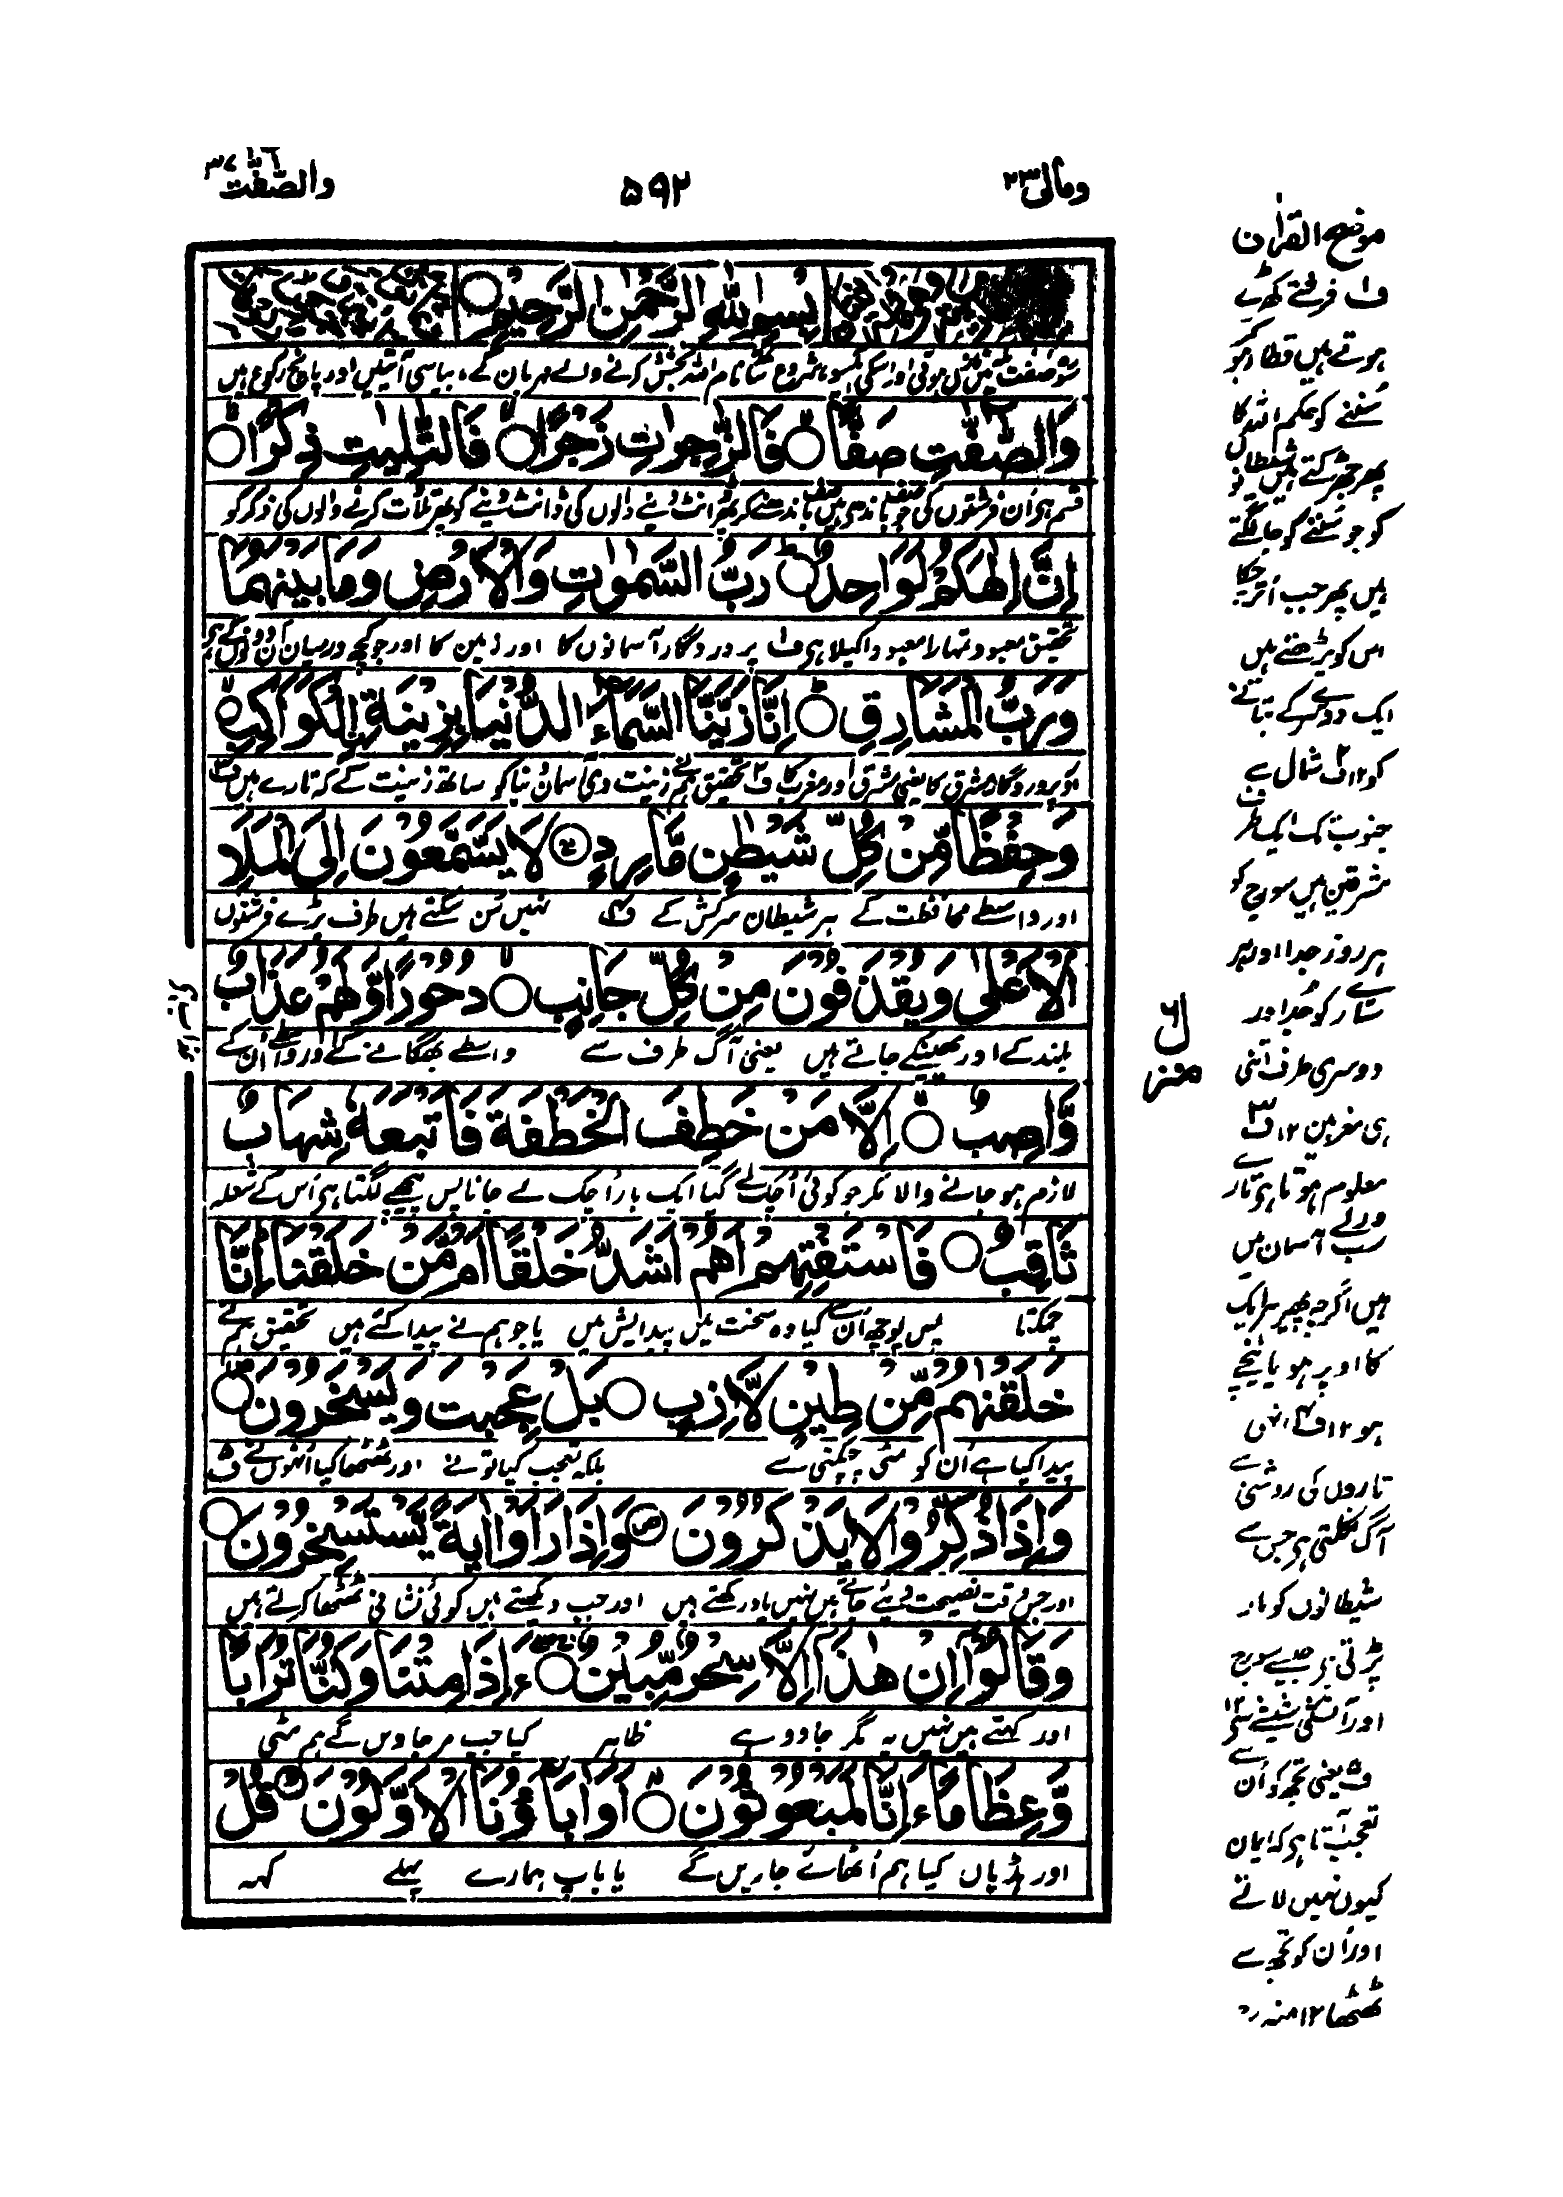 ومالی ٢٣
٥٩٢
والصّٰفّٰت ٣٧
بِسْمِ اللّٰهِ الرَّحْمٰنِ الرَّحِيْمِ
وَالصّٰٓفّٰتِ صَفًّا ۙ فَالزّٰجِرٰتِ زَجْرًا ۙ فَالتّٰلِيٰتِ ذِكْرًا ۙ
قسم ہی اُن فرشتوں کی جو صف باندہتے ہیں صف باندہنے کر پھر ڈانٹ دینے والوں کی ڈانٹ دینے کو پھر تلاوت کرنے والوں کی ذکر کو
اِنَّ اِلٰهَكُمْ لَوَاحِدٌ ؕ رَبُّ السَّمٰوٰتِ وَالْاَرْضِ وَمَا بَيْنَهُمَا
تحقیق معبود تمہارا معبود اکیلا ہی ف۱ پروردگار آسمانوں کا اور زمین کا اور جو کچھ درمیان ان دونوں کے ہی
وَرَبُّ الْمَشَارِقِ ؕ اِنَّا زَيَّنَّا السَّمَآءَ الدُّنْيَا بِزِيْنَةِ ۨالْكَوَاكِبِ ۙ
اور پروردگار مشرق کا یعنی مشرق اور مغرب کا ف۲ تحقیق ہم نے زینت دی آسمان دنیا کو ساتھ زینت کے کہ تارے ہیں ف۳
وَحِفْظًا مِّنْ كُلِّ شَيْطٰنٍ مَّارِدٍ ۚ لَا يَسَّمَّعُوْنَ اِلَى الْمَلَاِ
اور واسطے محافظت کے ہر شیطان سرکش کے ف۴ نہیں سُن سکتے ہیں طرف بڑے فرشتوں
الْاَعْلٰى وَيُقْذَفُوْنَ مِنْ كُلِّ جَانِبٍ ۙ دُحُوْرًا وَّلَهُمْ عَذَابٌ
بلند کے اور پھینکے جاتے ہیں یعنی آگ طرف سے واسطے بھگانے کے اور واسطے اُن کے
وَّاصِبٌ ۙ اِلَّا مَنْ خَطِفَ الْخَطْفَةَ فَاَتْبَعَهٗ شِهَابٌ
لازم ہو جانے والا مگر جو کوئی اُچک لے گیا ایک بار اُچک لے جانا پس پیچھے لگتا ہی اُس کے شعلہ
ثَاقِبٌ فَاسْتَفْتِهِمْ اَهُمْ اَشَدُّ خَلْقًا اَمْ مَّنْ خَلَقْنَا ؕ اِنَّا
چمکتا پس پوچھ اُن سے کیا وہ سخت ہیں پیدایش میں یا جو ہم نے پیدا کئے ہیں تحقیق ہم نے
خَلَقْنٰهُمْ مِّنْ طِيْنٍ لَّازِبٍ بَلْ عَجِبْتَ وَيَسْخَرُوْنَ ۪
پیدا کیا ہے اُن کو مٹی چپکنی سے بلکہ تعجب کیا تو نے اور ٹھٹھا کیا انہوں نے ف۵
وَاِذَا ذُكِّرُوْا لَا يَذْكُرُوْنَ ۪ وَاِذَا رَاَوْا اٰيَةً يَّسْتَسْخِرُوْنَ
اور جس وقت نصیحت دیئے جاتے ہیں نہیں یاد رکھتے ہیں اور جب دیکھتے ہیں کوئی نشانی ٹھٹھا کرتے ہیں
وَقَالُوْٓا اِنْ هٰذَآ اِلَّا سِحْرٌ مُّبِيْنٌ ءَاِذَا مِتْنَا وَكُنَّا تُرَابًا
اور کہتے ہیں نہیں یہ مگر جادو ہے ظاہر کیا جب مر جاویں گے ہم مٹی
وَّعِظَامًا ءَاِنَّا لَمَبْعُوْثُوْنَ ۙ اَوَاٰبَآؤُنَا الْاَوَّلُوْنَ ؕ قُلْ
اور ہڈیاں کیا ہم اُٹھائے جاویں گے یا باپ ہمارے پہلے کہہ
منزل ٦
موضح القرآن
ف۱ فرشتے کھڑے
ہوتے ہیں قطار ہو کر
سُننے کو حکم اللہ کا
پھر جھڑکتے ہیں شیطانوں
کو جو سُننے کو جا لگتے
ہیں پھر جب اُتر چکا
اس کو پڑھتے ہیں
ایک دوسرے کے بتانے
کو ١٢ ف۲ شمال سے
جنوب تک ایک طرف
مشرقین ہیں سورج کو
ہر روز جدا اور ہر
ستارے کو جدا اور
دوسری طرف اتنی
ہی مغربین ١٢ ف۳
معلوم ہوتا ہی تارے
ورلے آسمان میں
ہیں اگرچہ پھیر ہر ایک
کا اوپر ہو یا نیچے
ہو ١٢ ف۴ انہی
تاروں کی روشنی سے
آگ نکلتی ہی جس سے
شیطانوں کو مار
پڑتی ہی جیسے سورج
اور آتشی شیشے سے ١٢
ف۵ یعنی تجھ کو اُن سے
تعجب آتا ہی کہ ایمان
کیوں نہیں لاتے
اور اُن کو تجھ سے
ٹھٹھا ١٢ منہ رح